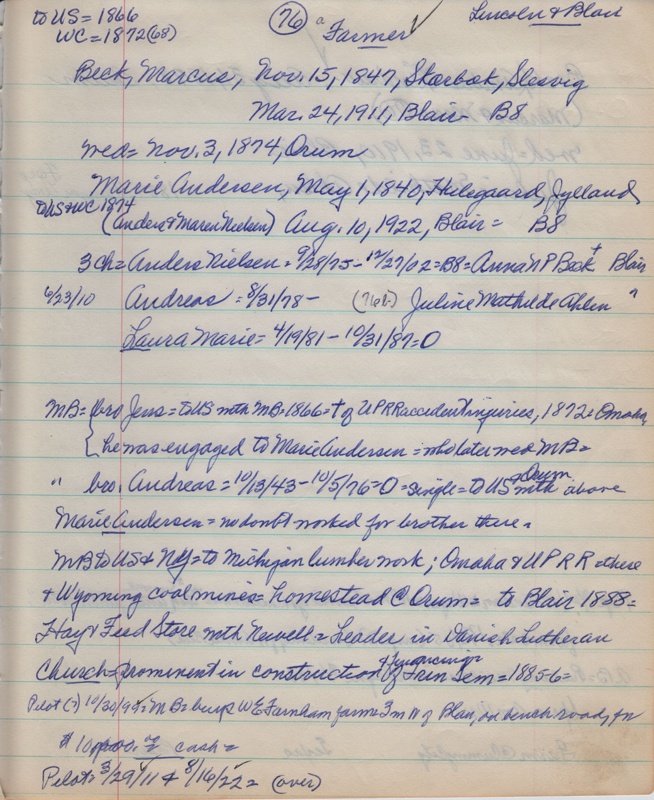 to US = 1866
WC = 1872 (68)
76
a Farmer ✓
Lincoln & Blair
Beck, Marcus, Nov. 15, 1847, Skarbæk, Slesvig
Mar. 24, 1911, Blair - B8
wed = Nov. 3, 1874, Orum
Marie Andersen, May 1, 1840, Jylland,
to US & WC 1874
(Anders & Maren Nielsen) Aug. 10, 1922, Blair = B8
3 ch = Anders Nielsen = 9/28/75 - 12/27/02 = B8 = Anna N P Beck + Blair
6/23/10 Andreas = 8/31/78 - (768-) Juline Mathilde Ahlen "
Laura Marie = 4/19/81 - 10/31/87 = O
MB = bro Jens = to US with MB = 1866 = + of UPRR accident injuries, 1872 = Omaha,
he was engaged to Marie Andersen = who later wed MB =
" bro. Andreas = 10/13/43 - 10/5/76 = O = single = to US & Orum with above
Marie Andersen = no doubt worked for brother there =
MB to US & NY = to Michigan lumber work; Omaha & UPRR = there
& Wyoming coal mines = homestead @ Orum = to Blair 1888 =
Hay & Feed Store with Newell = Leader in Danish Lutheran
Church = prominent in construction & financing of Trin Sem = 1885-6 =
Pilot (?) 10/30/94 = MB = buys WE Farnham farm = 3 m W of Blair, on bench road, for
$ cash =
Pilot = 3/29/11 & 8/16/22 = (over)